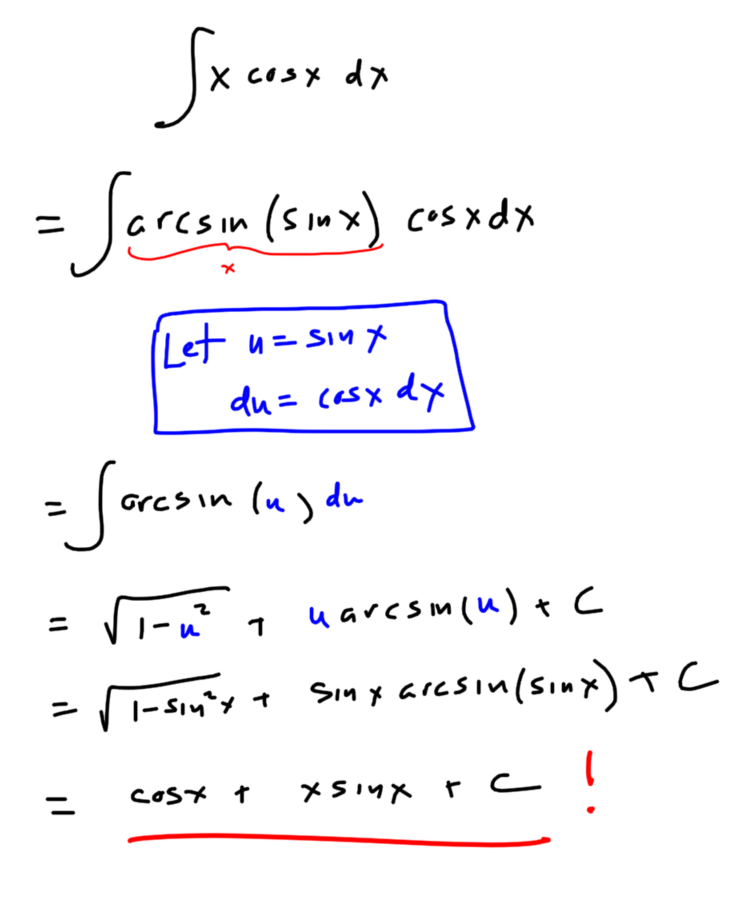 ∫ x cosx dx
= ∫ arcsin (sinx) cosxdx
x
Let u = sinx
du = cosx dx
= ∫ arcsin (u) du
= √(1-u²) + u arcsin(u) + C
= √(1-sin²x) + sinx arcsin(sinx) + C
= cosx + xsinx + C !